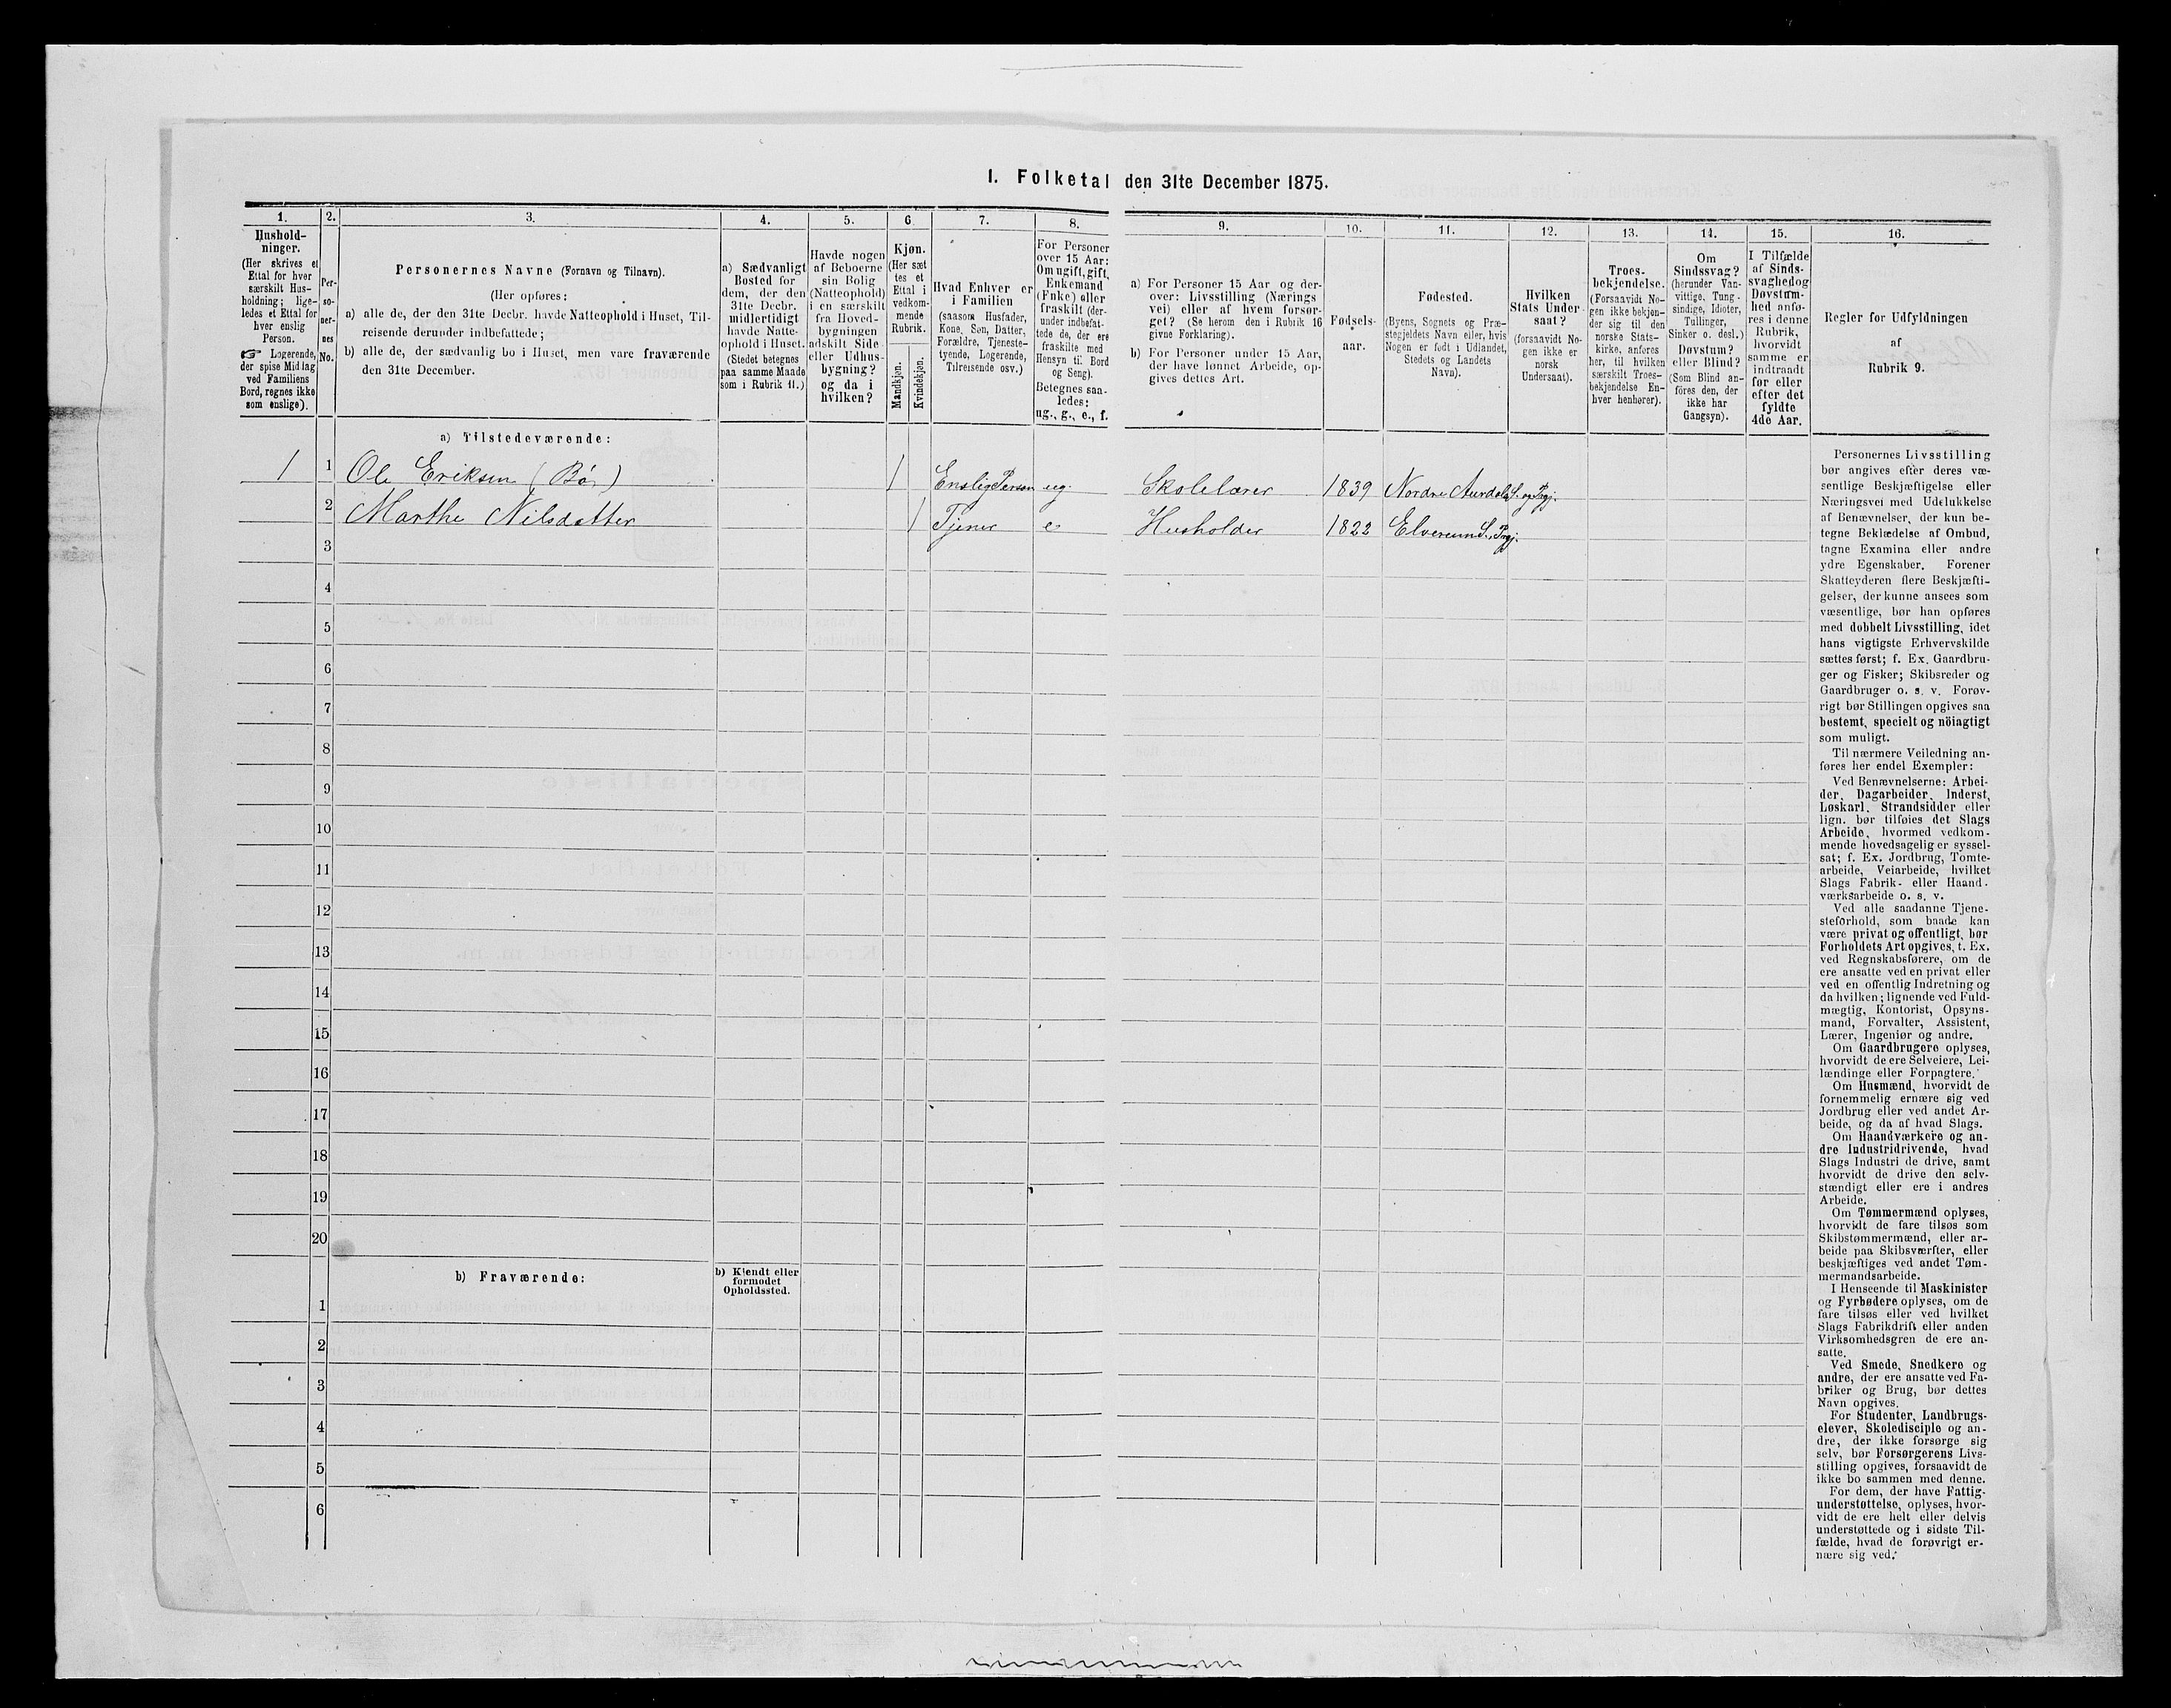 I. Folketal den 31te December 1875.
1.
Hushold-
ninger.
(Her skrives et
Ettal for hver
særskilt Hus-
holdning; lige-
ledes et Ettal for
hver enslig
Person.
☞ Logerende,
der spise Middag
ved Familiens
Bord, regnes ikke
som enslige).
2.
Per-
so-
ner-
nes
No.
3.
Personernes Navne (Fornavn og Tilnavn).
(Her opføres:
a) alle de, der den 31te Decbr. havde Natteophold i Huset, Til-
reisende derunder indbefattede;
b) alle de, der sædvanlig bo i Huset, men vare fraværende
den 31te December.
4.
a) Sædvanligt
Bosted for
dem, der den
31te Decbr.
midlertidigt
havde Natte-
ophold i Huset.
(Stedet betegnes
paa samme Maade
som i Rubrik 11.)
5.
Havde nogen
af Beboerne
sin Bolig
(Natteophold)
i en særskilt
fra Hoved-
bygningen
adskilt Side-
eller Udhus-
bygning?
og da i
hvilken?
6.
Kjøn.
(Her sæt
tes et
Ettal i
vedkom-
mende
Rubrik.
Mandkjøn.
Kvindekjøn.
7.
Hvad Enhver er
i Familien
(saasom Husfader,
Kone, Søn, Datter,
Forældre, Tjeneste-
tyende, Logerende,
Tilreisende osv.)
8.
For Personer
over 15 Aar:
Om ugift, gift,
Enkemand
(Enke) eller
fraskilt (der-
under indbefat-
tede de, der ere
fraskilte med
Hensyn til Bord
og Seng).
Betegnes saa-
ledes:
ug., g., e., f.
9.
a) For Personer 15 Aar og der-
over: Livsstilling (Nærings
vei) eller af hvem forsør-
get? (Se herom den i Rubrik 16
givne Forklaring).
b) For Personer under 15 Aar,
der have lønnet Arbeide, op-
gives dettes Art.
10.
Fødsels-
aar.
11.
Fødested.
(Byens, Sognets og Præ-
stegjeldets Navn eller, hvis
Nogen er født i Udlandet,
Stedets og Landets
Navn).
12.
Hvilken
Stats Under-
saat?
(forsaavidt No-
gen ikke er
norsk
Undersaat).
13.
Troes-
bekjendelse.
(Forsaavidt No-
gen ikke bekjen-
der sig til den
norske Stats-
kirke, anføres
her, til hvilken
særskilt Troes-
bekjendelse En-
hver henhører).
14.
Om
Sindssvag?
(herunder Van-
vittige, Tung-
sindige, Idioter,
Tullinger,
Sinker o. desl.)
Døvstum?
eller Blind?
(Som Blind an-
föres den, der
ikke har
Gangsyn).
15.
I Tilfælde
af Sinds-
svaghed og
Døvstum-
hed anfø-
res i denne
Rubrik,
hvorvidt
samme er
indtraadt
før eller
efter det
fyldte
4de Aar.
16.
Regler for Udfyldningen
af
Rubrik 9.
a) Tilstedeværende:
1 1 Ole Eriksen (Bø) 1 Enslig Person ug. Skolelærer 1839 Nordre Aurdals S. og Prgj.
2 Marthe Nilsdatter 1 Tjener e Husholder 1822 Elverum S., Prgj.
3
4
5
6
7
8
9
10
11
12
13
14
15
16
17
18
19
20
b) Fraværende:
b) Kjendt eller
formodet
Opholdssted.
1
2
3
4
5
6
Personernes Livsstilling
bør angives efter deres væ-
sentlige Beskjæftigelse eller
Næringsvei med Udelukkelse
af Benævnelser, der kun be-
tegne Beklædelse af Ombud,
tagne Examina eller andre
ydre Egenskaber. Forener
Skatteyderen flere Beskjæfti-
gelser, der kunne ansees som
væsentlige, bør han opføres
med dobbelt Livsstilling, idet
hans vigtigste Erhvervskilde
sættes først; f. Ex. Gaardbru-
ger og Fisker; Skibsreder og
Gaardbruger o. s. v. Forøv-
rigt bør Stillingen opgives saa
bestemt, specielt og nöiagtigt
som muligt.
Til nærmere Veiledning an-
føres her endel Exempler:
Ved Benævnelserne: Arbei-
der, Dagarbeider, Inderst,
Løskarl, Strandsidder eller
lign. bør tilføies det Slags
Arbeide, hvormed vedkom-
mende hovedsagelig er syssel-
sat; f. Ex. Jordbrug, Tomte-
arbeide, Veiarbeide, hvilket
Slags Fabrik- eller Haand-
værksarbeide o. s. v.
Ved alle saadanne Tjene-
steforhold, som baade kan
være privat og offentligt, bør
Forholdets Art opgives, t. Ex.
ved Regnskabsførere, om de
ere ansatte ved en privat eller
ved en offentlig Indretning og
da hvilken; lignende ved Fuld-
mægtig, Kontorist, Opsyns-
mand, Forvalter, Assistent,
Lærer, Ingeniør og andre.
Om Gaardbrugere oplyses,
hvorvidt de ere Selveiere, Lei-
lændinge eller Forpagtere.
Om Husmænd, hvorvidt de
fornemmelig ernære sig ved
Jordbrug eller ved andet Ar-
beide, og da af hvad Slags.
Om Haandværkere og an-
dre Industridrivende, hvad
Slags Industri de drive, samt
hvorvidt de drive den selv-
stændigt eller ere i andres
Arbeide.
Om Tømmermænd oplyses,
hvorvidt de fare tilsøs som
Skibstømmermænd, eller ar-
beide paa Skibsværfter, eller
beskjæftiges ved andet Tøm-
mermandsarbeide.
I Henseende til Maskinister
og Fyrbødere oplyses, om de
fare tilsøs eller ved hvilket
Slags Fabrikdrift eller anden
Virksomhedsgren de ere an-
satte.
Ved Smede, Snedkere og
andre, der ere ansatte ved Fa-
briker og Brug, bør dettes
Navn opgives.
For Studenter, Landbrugs-
elever, Skoledisciple og an-
dre, der ikke forsørge sig
selv, bør Forsørgerens Livs-
stilling opgives, forsaavidt de
ikke bo sammen med denne.
For dem, der have Fattig-
understøttelse, oplyses, hvor-
vidt de ere helt eller delvis
understøttede og i sidste Til-
fælde, hvad de forøvrigt er-
nære sig ved.